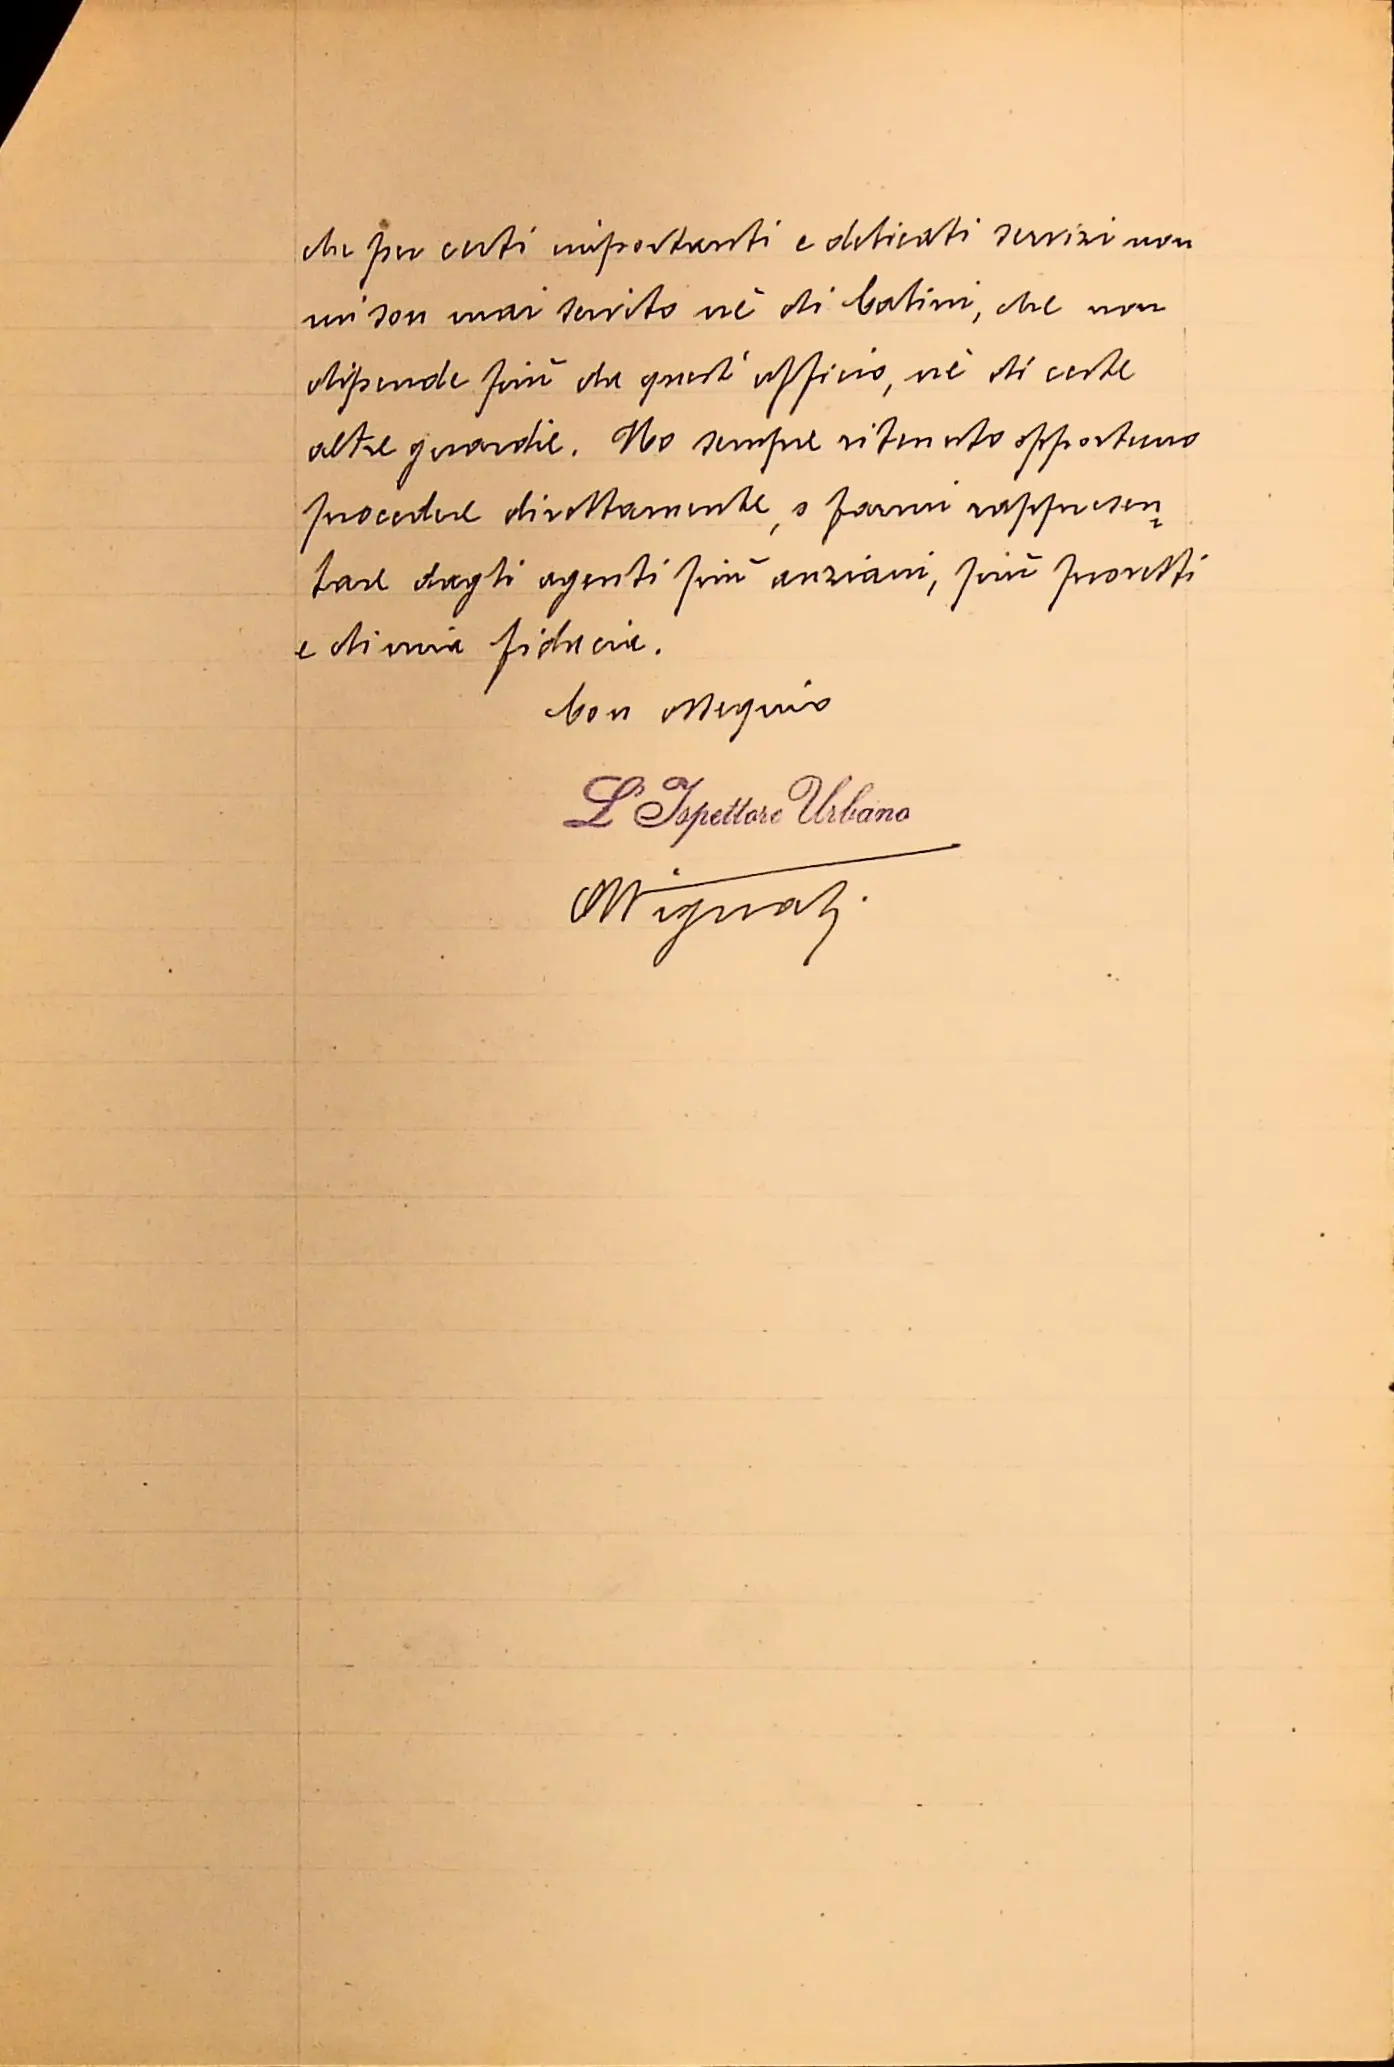 che per certi importanti e delicati servizi non
mi son mai servito nè di Catini, che non
dipende più da quest'ufficio, nè di certe
altre guardie. Ho sempre ritenuto opportuno
procedere direttamente, o farmi rappresen=
tare dagli agenti più anziani, più provetti
e di mia fiducia.
Con ossequio
L'Ispettore Urbano